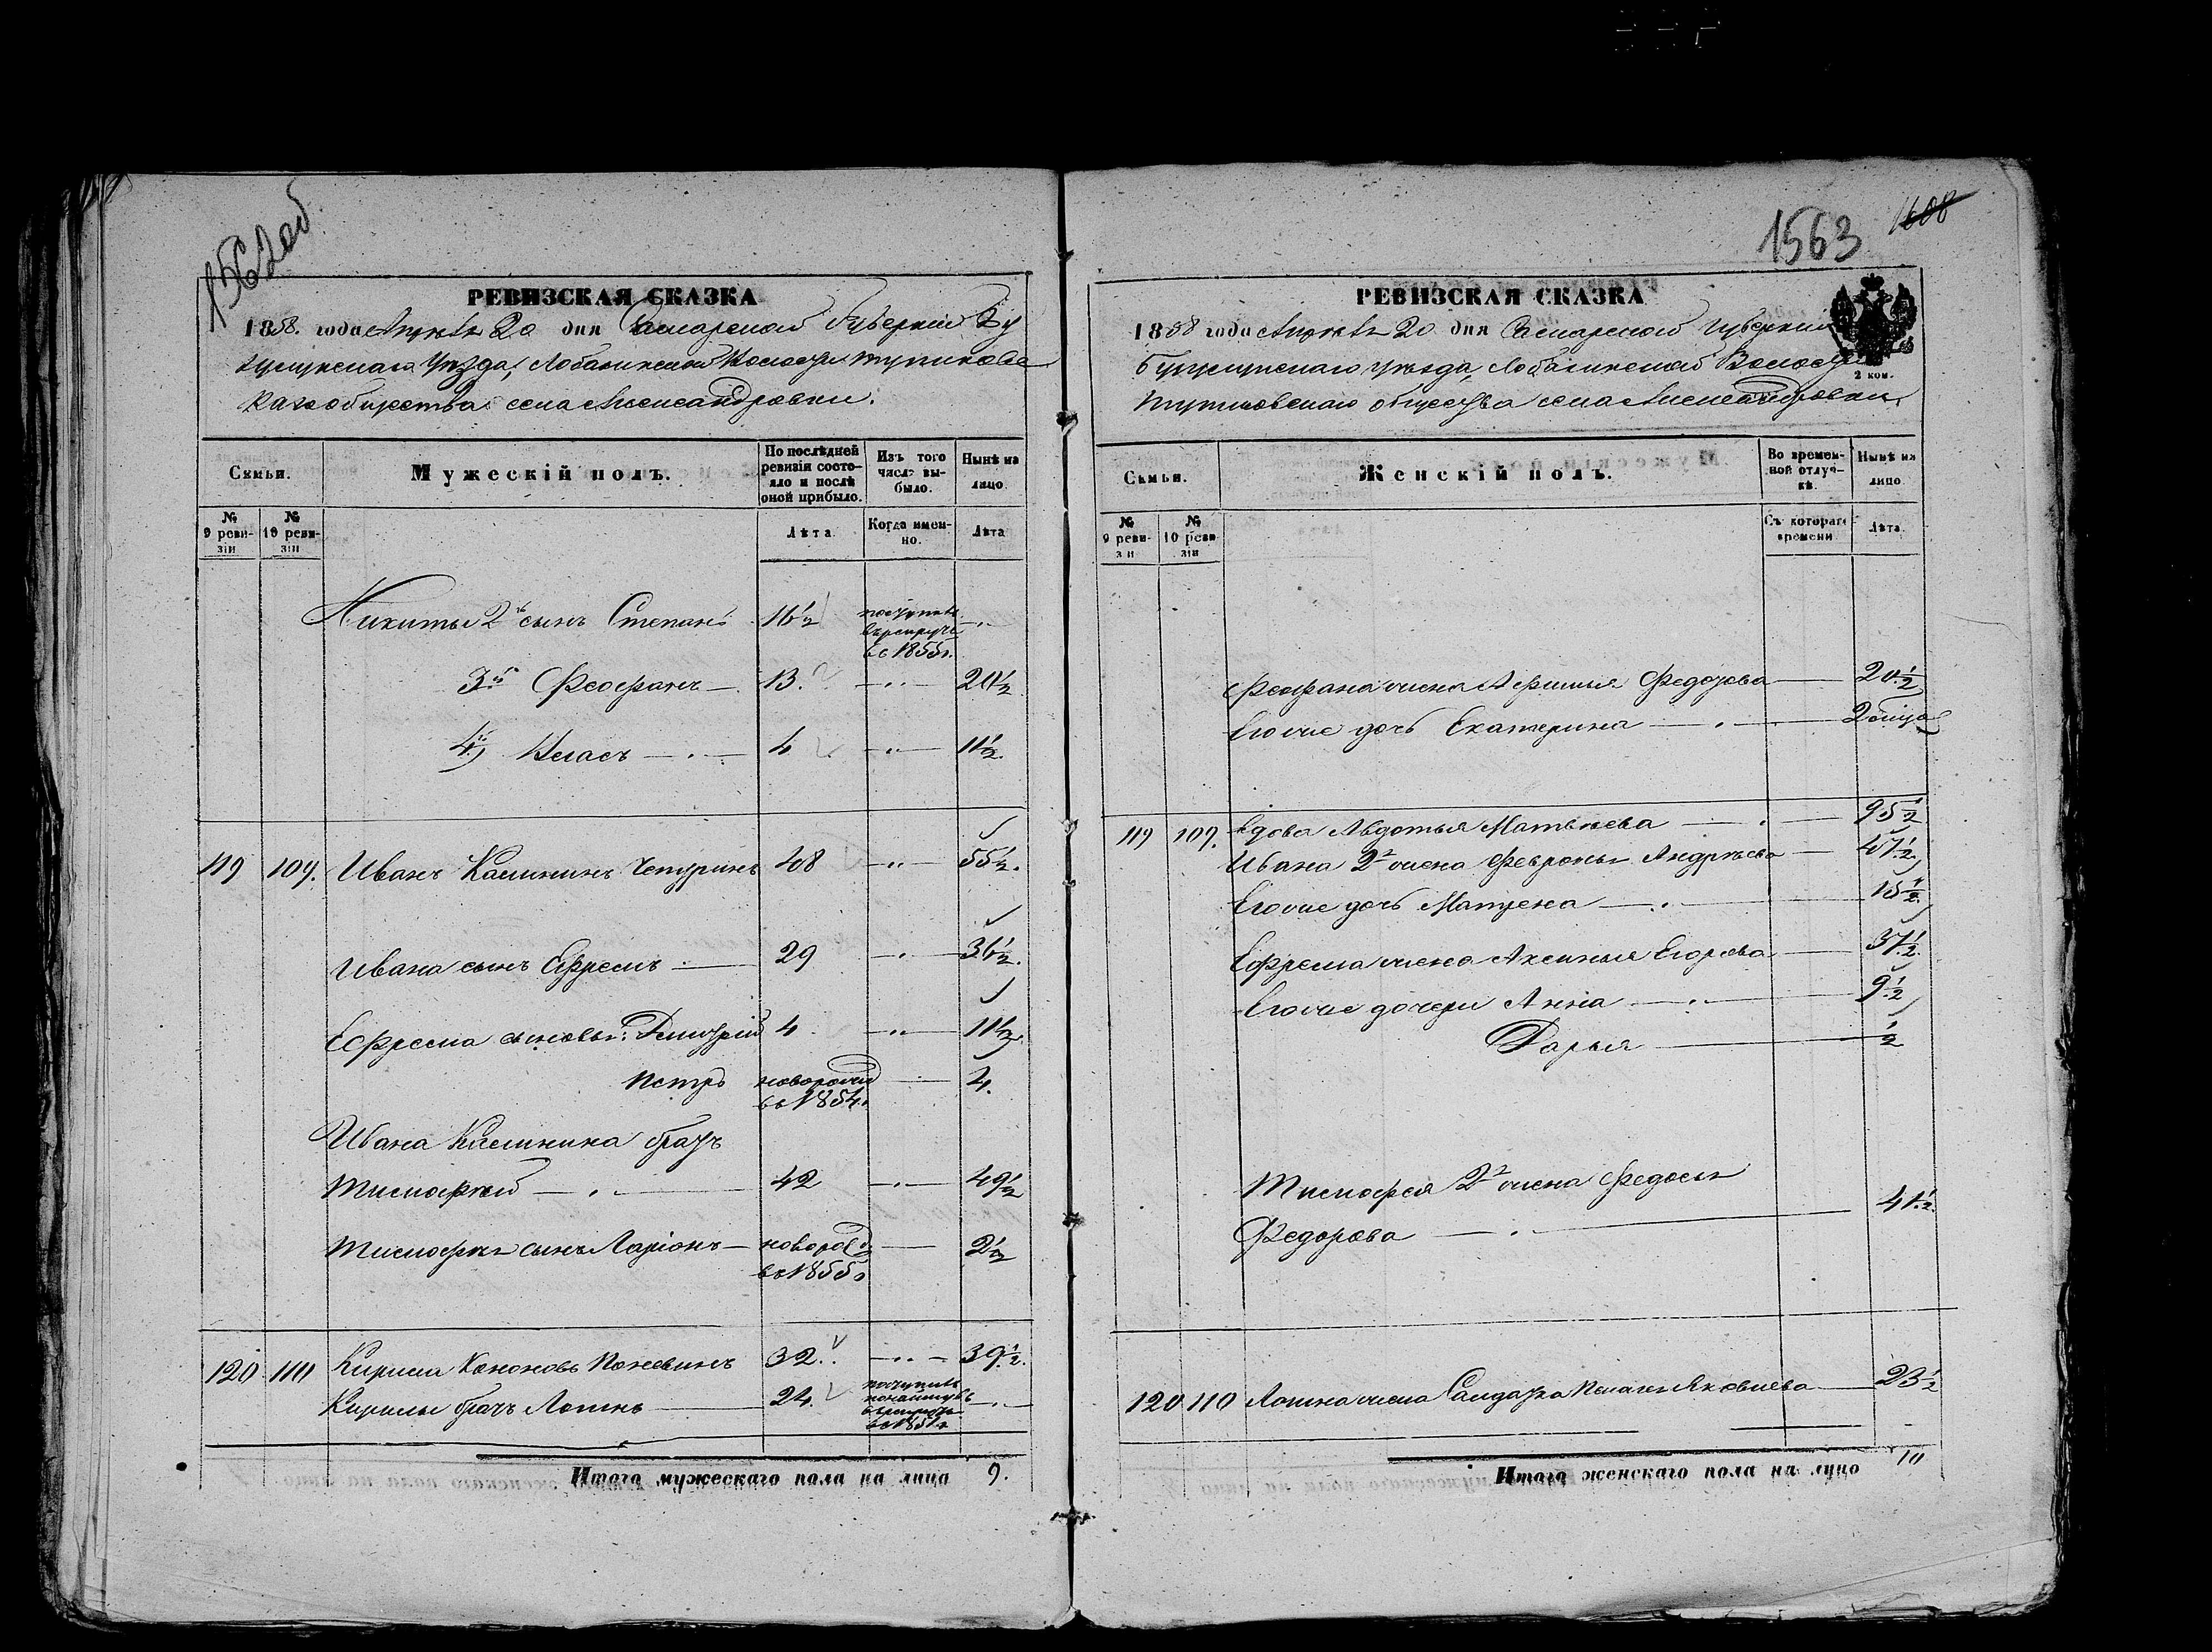 1562об
РЕВИЗСКАЯ СКАЗКА
1858. года Апрѣля 20 дня Самарской Губерніи Бу
гульминскаго Уѣзда,
кагообщества села Александровки.
Семьи.
Мужескій полъ.
По послѣдней ревизіи состояло и послѣ оной прибыло.
Изъ того числа выбыло.
Нынѣ на лицо
№ 9 ревизіи
№ 10 ревизіи
Лѣта
Когда именно.
Лѣта
Никиты 2й сынъ Степанъ 16½ поступилъ въ рекруты въ 1855г. —"—
3й Феофанъ — 13. —"— 20½
4й Власъ — 4 —"— 11½.
119 109. Иванъ Калининъ 48 —"— 55½.
Ивана сынъ Ефремъ — 29 —"— 36½.
Ефрема сыновья: Дмитрій 4 —"— 11½
Петръ новорожд въ 1854г. — 4.
Ивана Калинина братъ
Тимофей —"— 42 —"— 49½
Тимофея сынъ Ларіонъ — новорожд въ 1855г — 2½
120 110 Кирила Кононовъ 32. —"— 39½.
Кирилы братъ Логинъ 24. поступилъ въ рекруты —"—
Итого мужескаго пола на лицо 9.
1563 1608
РЕВИЗСКАЯ СКАЗКА
1858 года Апрѣля 20 дня Самарской Губерніи
уѣзда, Волости
общества села Александровки.
2 коп.
Семьи.
Женскій полъ.
Во временной отлучкѣ.
Нынѣ на лицо
№ 9 ревизіи
№ 10 ревизіи
Съ котораго времени
Лѣта.
Феофана жена Афимья Федорова — 20½
Егоже дочь Екатерина —"—
119 109. Вдова Авдотья Матвѣева —"— 95½
Ивана 2я жена Февронья Андрѣева — 47½
Егоже дочь Матрена —"— 15½
Ефрема жена Аксинья Егорова — 37½.
Егоже дочери Анна —"— 9½
Дарья — ½
Тимофея 2я жена Федосья
Федорова —"— 41½.
120 110 Логина жена Солдатка Яковлева — 23½
Итого женскаго пола на лицо 10